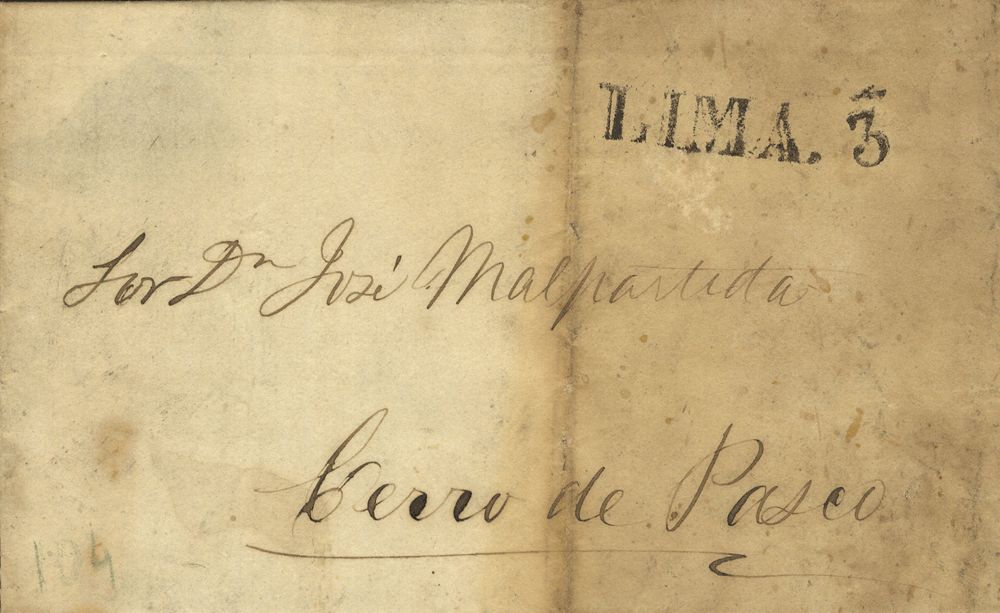 LIMA. 3
Sor Dn José Malpartida
Cerro de Pasco
104